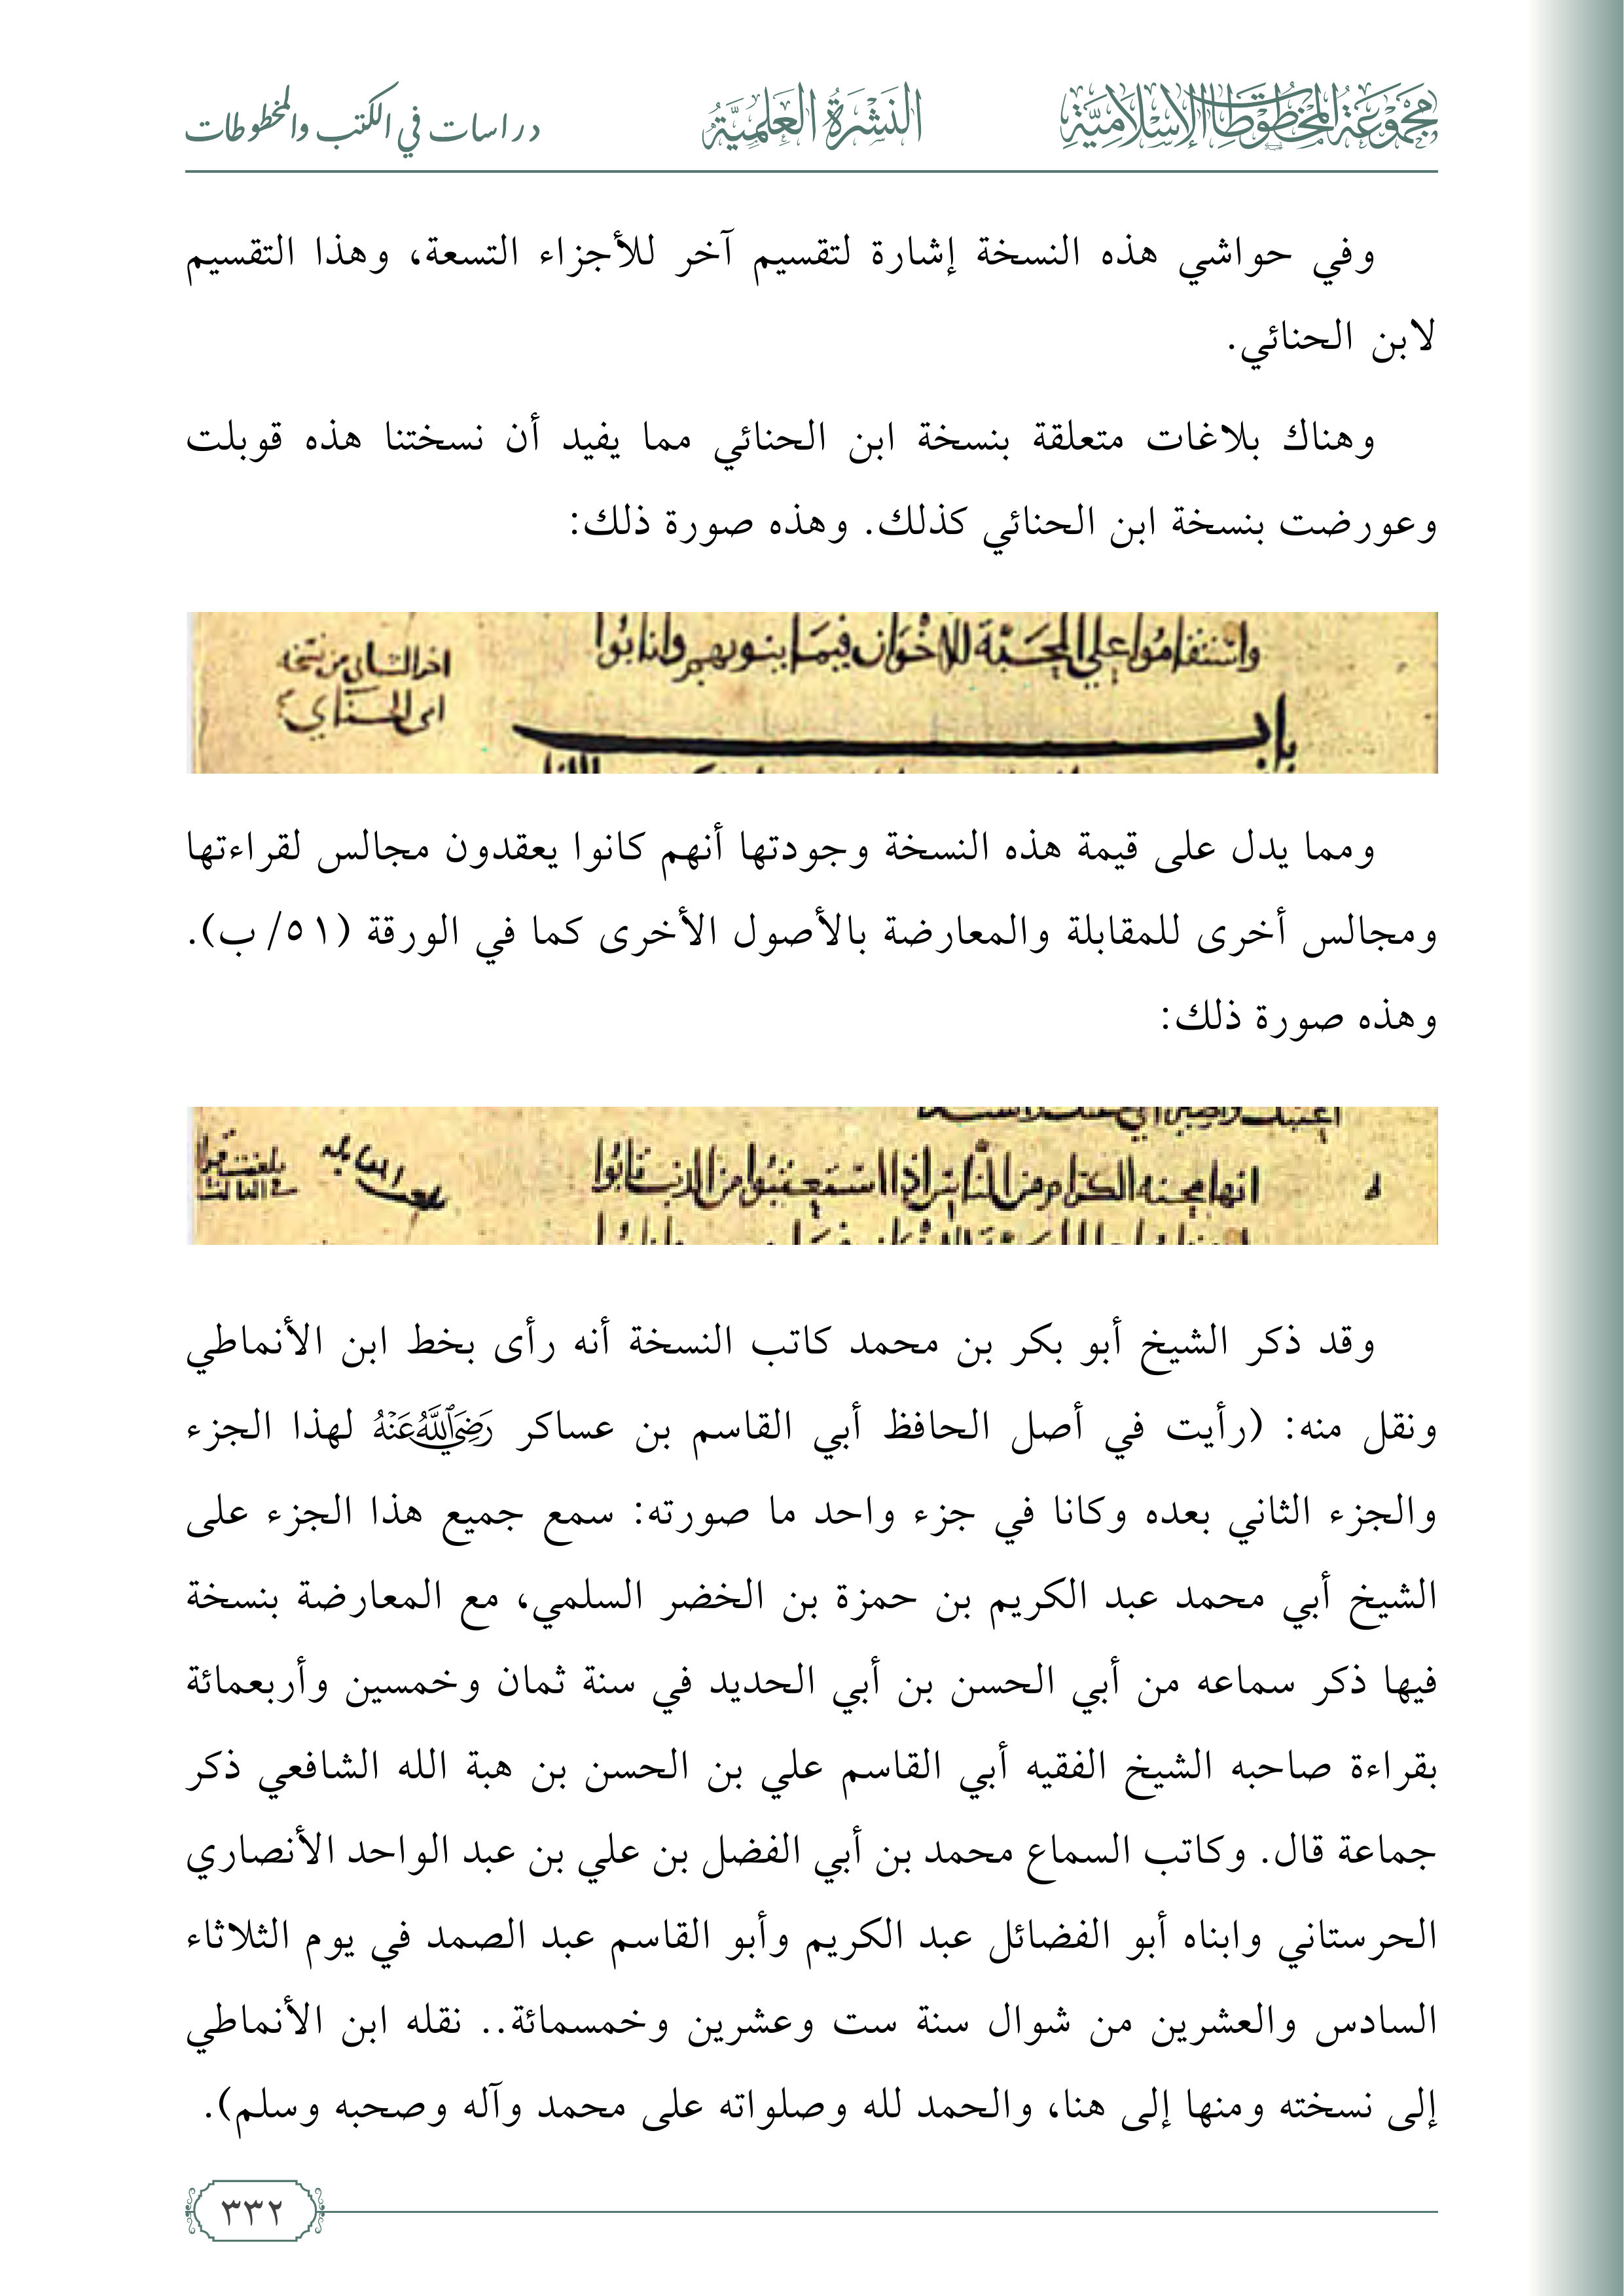 مَجْمُوعَةُ المَخْطُوطَاتِ الإِسْلَامِيَّةِ
النَّشْرَةُ العِلْمِيَّةُ
دراسات في الكتب والمخطوطات
وفي حواشي هذه النسخة إشارة لتقسيم آخر للأجزاء التسعة، وهذا التقسيم
لابن الحنائي.
وهناك بلاغات متعلقة بنسخة ابن الحنائي مما يفيد أن نسختنا هذه قوبلت
وعورضت بنسخة ابن الحنائي كذلك. وهذه صورة ذلك:
واستقاموا على المحبة للاخوان فيما ينوبهم وانابوا
اخر الثاني من نسخة
ابن الحنائي
باب
ومما يدل على قيمة هذه النسخة وجودتها أنهم كانوا يعقدون مجالس لقراءتها
ومجالس أخرى للمقابلة والمعارضة بالأصول الأخرى كما في الورقة (٥١/ ب).
وهذه صورة ذلك:
من الناس اذا استعتبوا من الذنب تابوا
بلغت
وقد ذكر الشيخ أبو بكر بن محمد كاتب النسخة أنه رأى بخط ابن الأنماطي
ونقل منه: (رأيت في أصل الحافظ أبي القاسم بن عساكر رَضِيَ اللَّهُ عَنْهُ لهذا الجزء
والجزء الثاني بعده وكانا في جزء واحد ما صورته: سمع جميع هذا الجزء على
الشيخ أبي محمد عبد الكريم بن حمزة بن الخضر السلمي، مع المعارضة بنسخة
فيها ذكر سماعه من أبي الحسن بن أبي الحديد في سنة ثمان وخمسين وأربعمائة
بقراءة صاحبه الشيخ الفقيه أبي القاسم علي بن الحسن بن هبة الله الشافعي ذكر
جماعة قال. وكاتب السماع محمد بن أبي الفضل بن علي بن عبد الواحد الأنصاري
الحرستاني وابناه أبو الفضائل عبد الكريم وأبو القاسم عبد الصمد في يوم الثلاثاء
السادس والعشرين من شوال سنة ست وعشرين وخمسمائة.. نقله ابن الأنماطي
إلى نسخته ومنها إلى هنا، والحمد لله وصلواته على محمد وآله وصحبه وسلم).
٣٣٢